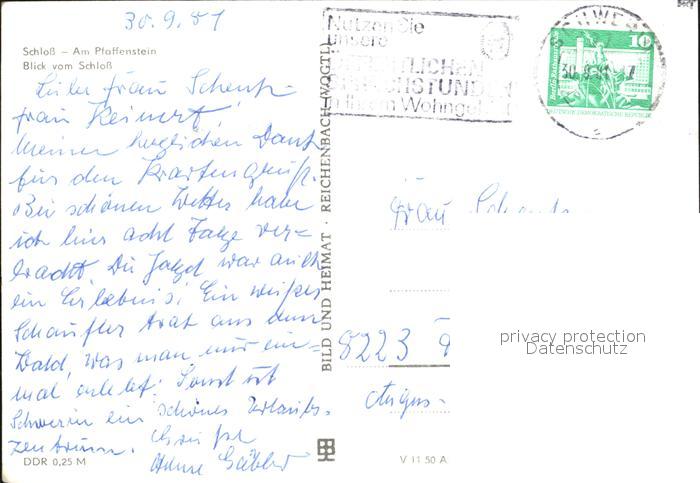 30.9.81
Schloß – Am Pfaffenstein
Blick vom Schloß
Liebe Frau Schenk –
Frau Reinert!
Meinen herzlichen Dank
für den Kartengruß.
Bei schönen Wetter habe
ich hier acht Tage ver=
bracht. Die Jagd war auch
ein Erlebnis! Ein weißes
Schaufler trat aus dem
Wald, was man nur ein=
mal erlebt. Sonst ist
Schwerin ein schönes Urlaubs-
zentrum.
DDR 0,25 M
BILD UND HEIMAT · REICHENBACH (VOGTL)
V 11 50 A
Nutzen Sie
unsere
Wohngebiet
30.9.81
10
Berlin Rathausstraße
DEUTSCHE DEMOKRATISCHE REPUBLIK
Frau
8223
privacy protection
Datenschutz